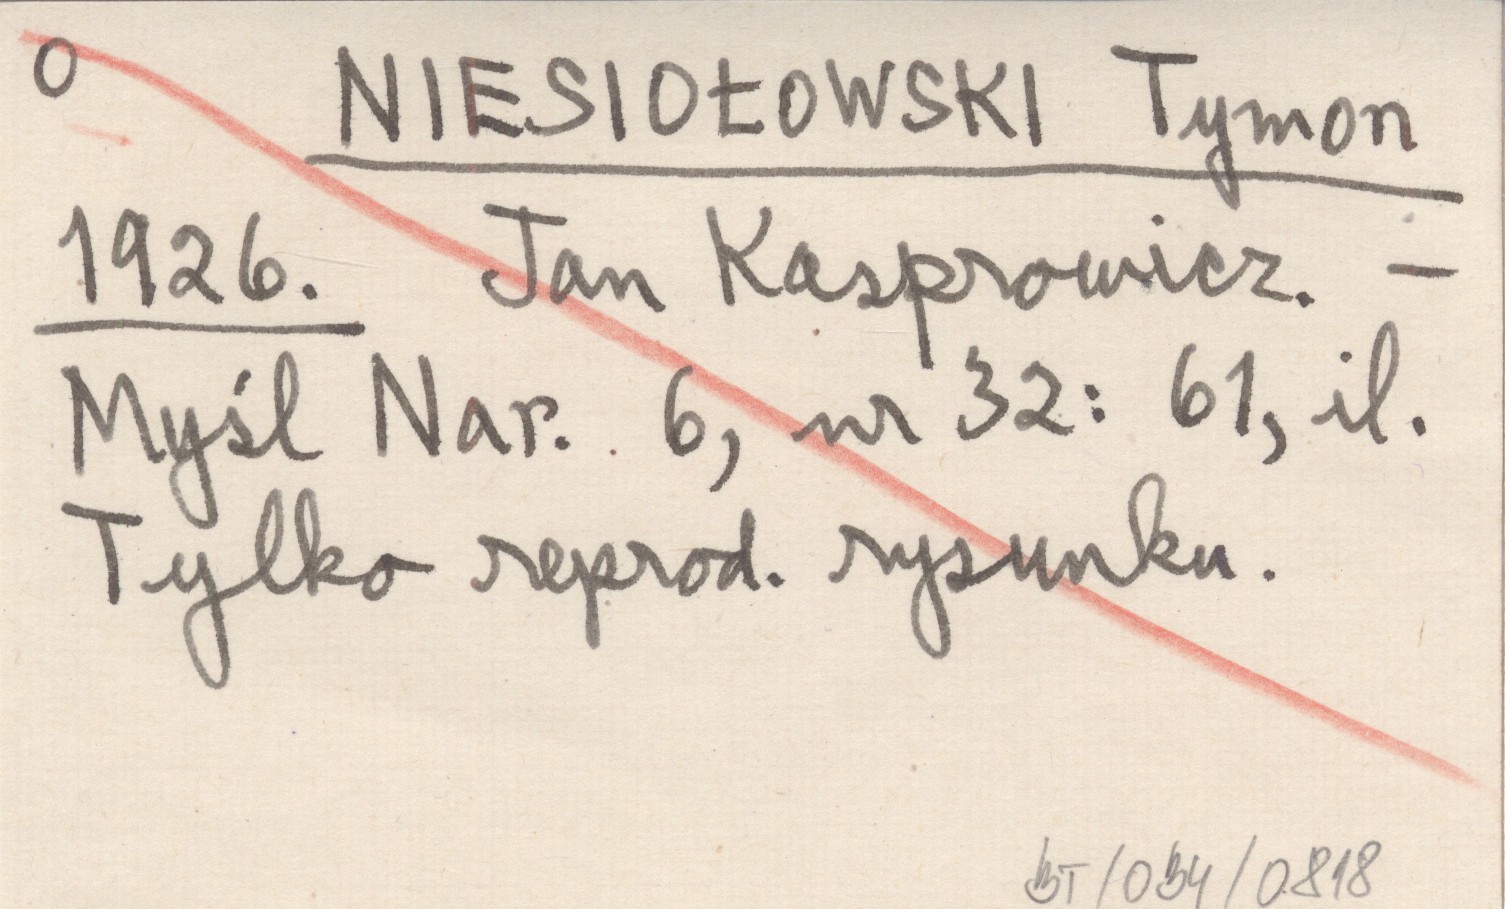 O NIESIOŁOWSKI Tymon
1926. Jan Kasprowicz. –
Myśl Nar. 6, nr 32: 61, il.
Tylko reprod. rysunku.
BT/0B4/0818